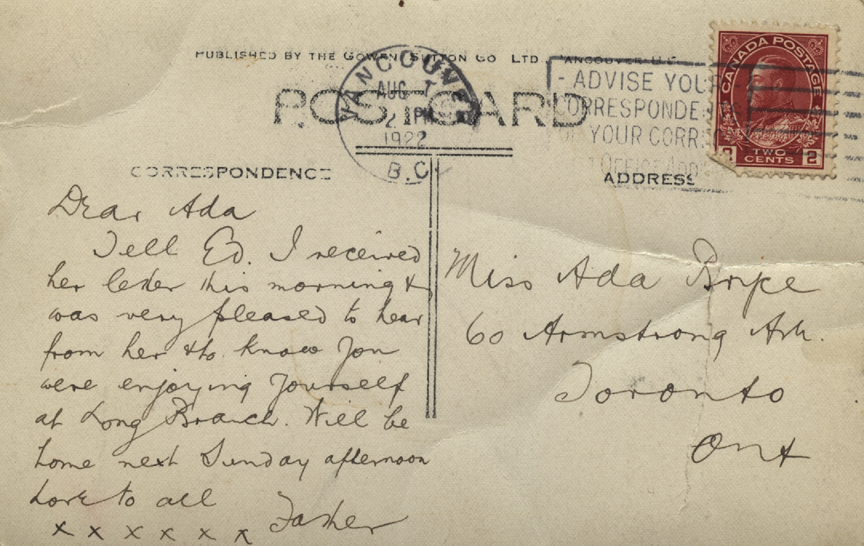 PUBLISHED BY THE GOWEN SUTTON CO LTD., VANCOUVER B.C.
POST CARD
VANCOUVER
AUG 7
2 PM
1922
B.C.
- ADVISE YOUR
CORRESPONDE
YOUR CORR
CANADA POSTAGE
2 TWO CENTS 2
CORRESPONDENCE
ADDRESS
Dear Ada
Tell Ed. I received
her letter this morning &
was very pleased to hear
from her & to know you
were enjoying yourself
at Long Branch. Will be
home next Sunday afternoon
Love to all
x x x x x x Father
Miss Ada
60 Armstrong
Toronto
Ont